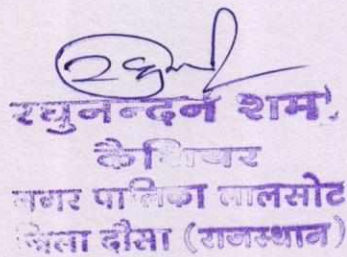 रघुनन्दन शर्मा
कैशियर
नगर पालिका लालसोट
जिला दौसा (राजस्थान)